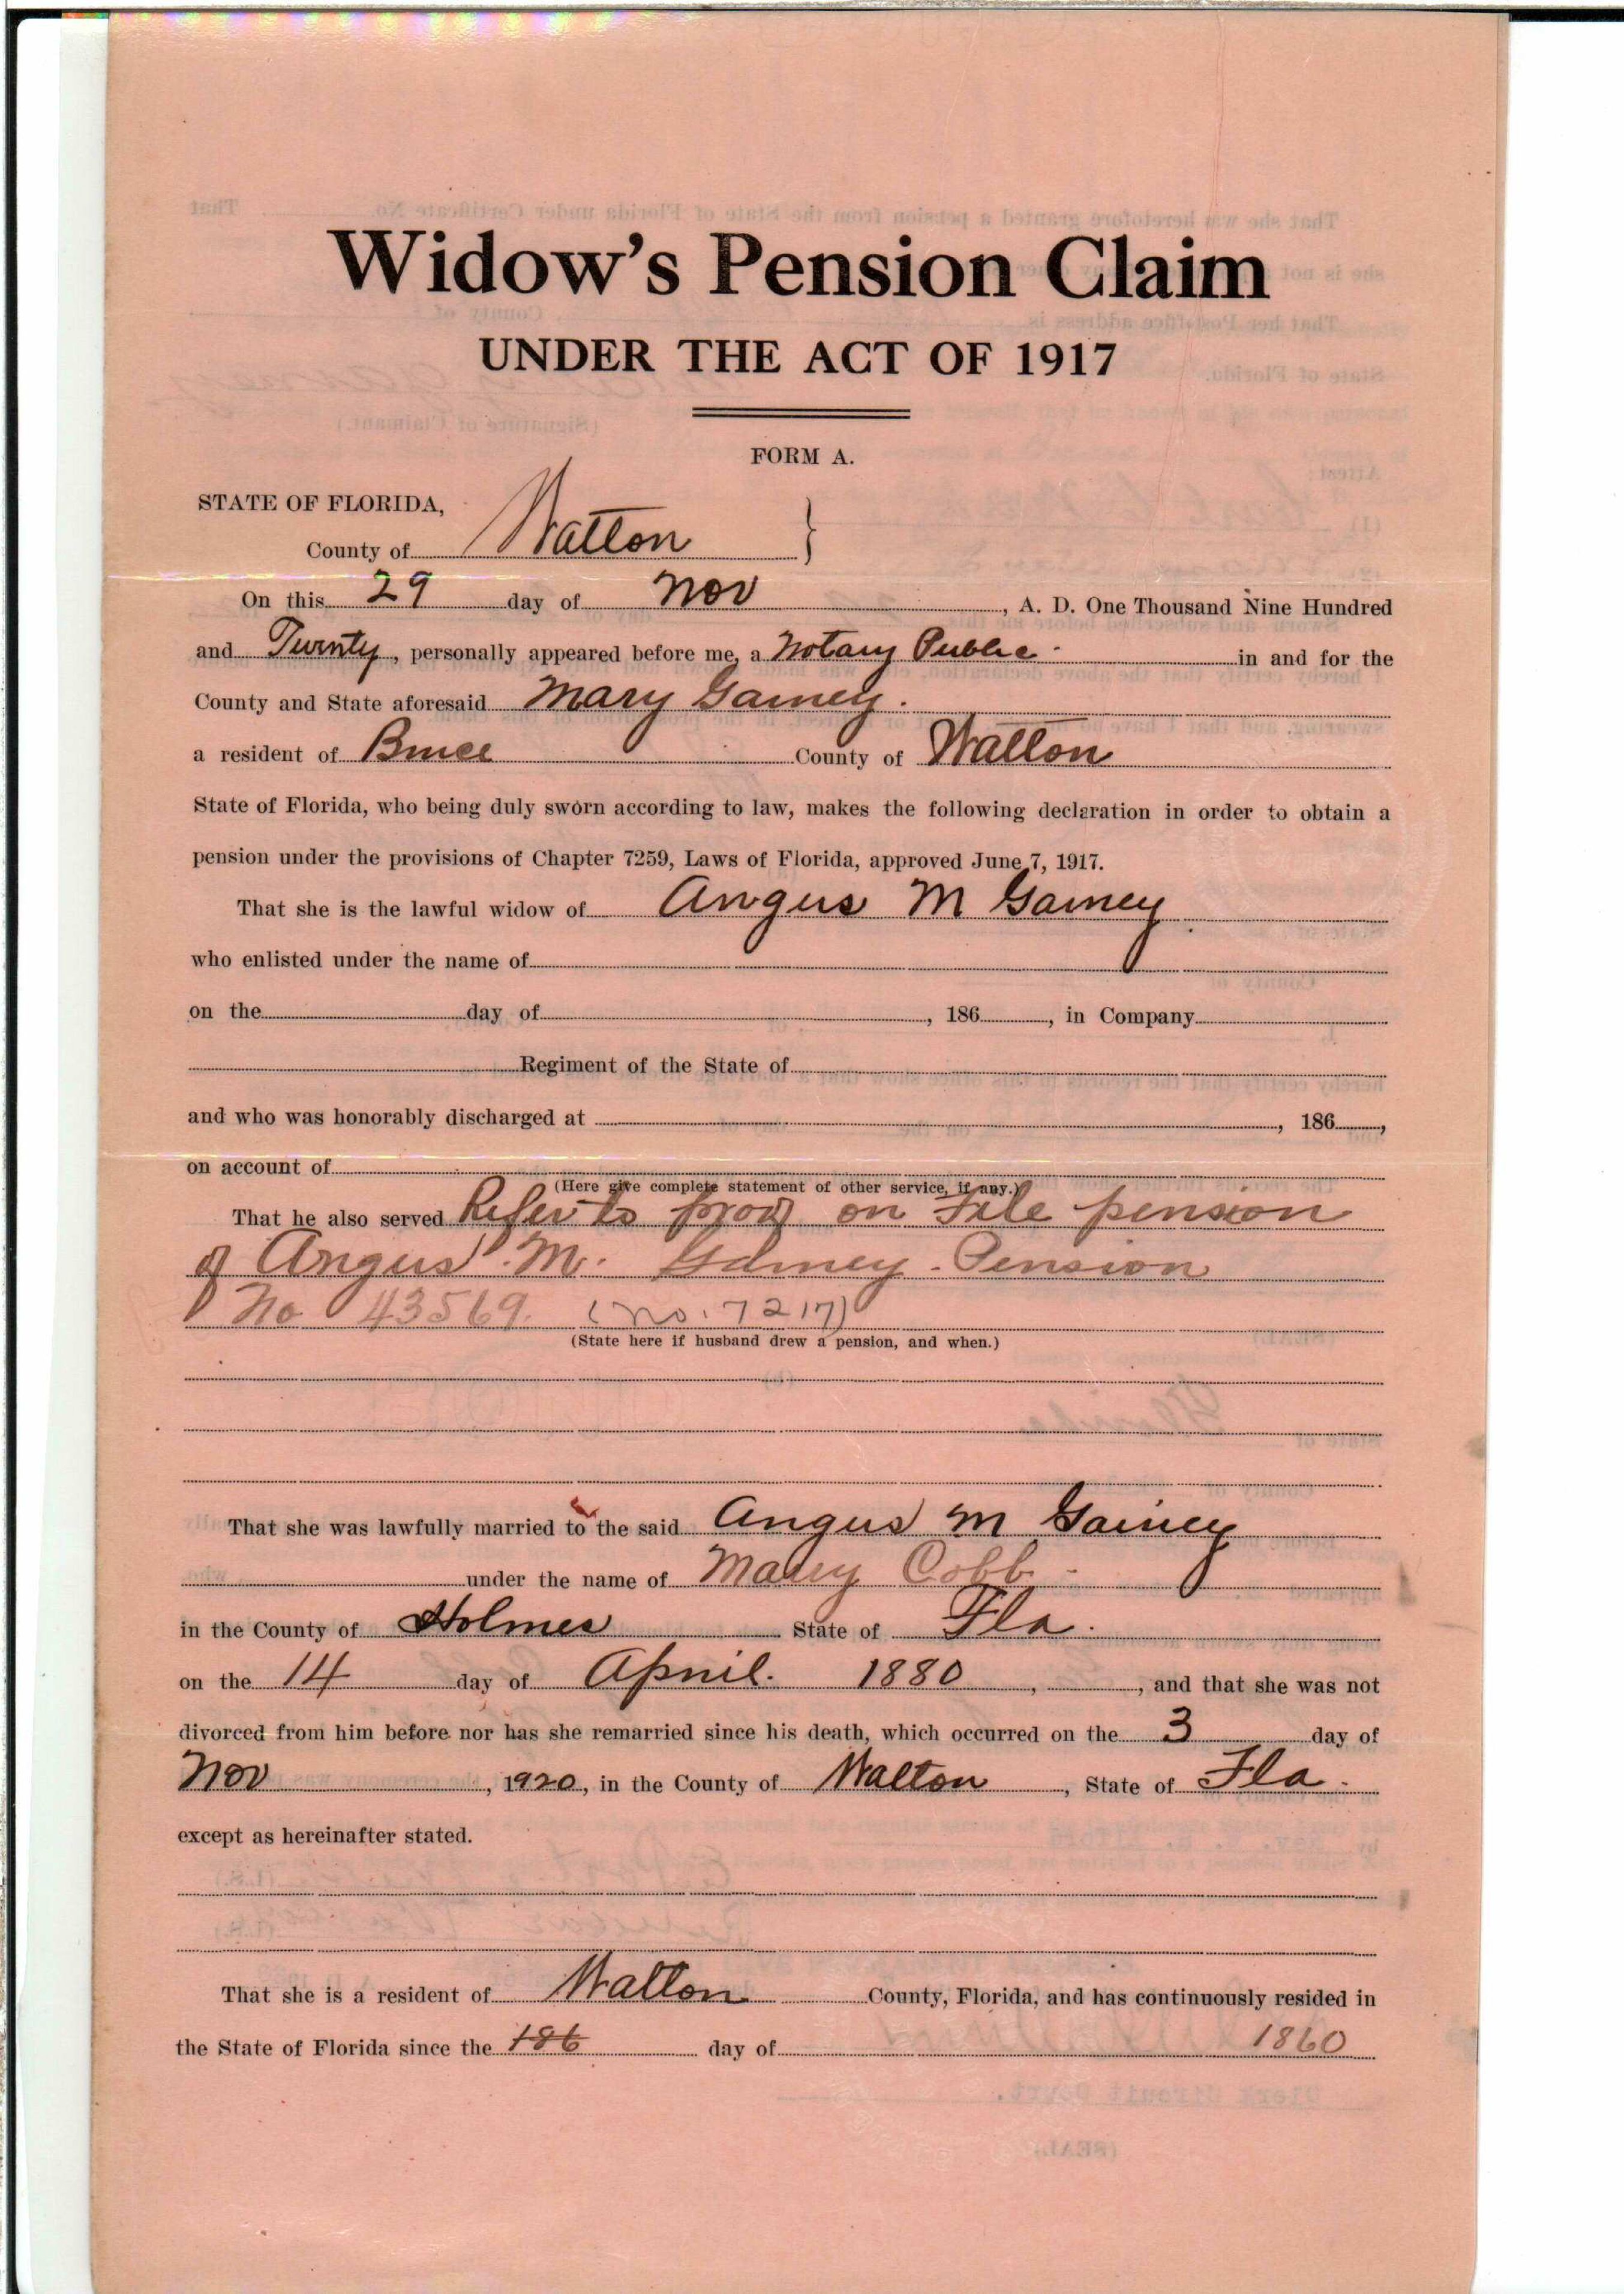 Widow's Pension Claim
UNDER THE ACT OF 1917
FORM A.
STATE OF FLORIDA,
County of Walton }
On this 29 day of Nov , A. D. One Thousand Nine Hundred
and Twenty, personally appeared before me, a Notary Public in and for the
County and State aforesaid Mary Gainey.
a resident of Bruce County of Walton
State of Florida, who being duly sworn according to law, makes the following declaration in order to obtain a
pension under the provisions of Chapter 7259, Laws of Florida, approved June 7, 1917.
That she is the lawful widow of Angus M Gainey
who enlisted under the name of
on the day of , 186 , in Company
Regiment of the State of
and who was honorably discharged at , 186 ,
on account of
(Here give complete statement of other service, if any.)
That he also served Refer to proof on File pension
of Angus M. Gainey - Pension
No 43569. (No. 7217)
(State here if husband drew a pension, and when.)
That she was lawfully married to the said Angus M Gainey
under the name of Mary Cobb -
in the County of Holmes State of Fla.
on the 14 day of April. 1880 , , and that she was not
divorced from him before nor has she remarried since his death, which occurred on the 3 day of
Nov , 1920, in the County of Walton , State of Fla.
except as hereinafter stated.
That she is a resident of Walton County, Florida, and has continuously resided in
the State of Florida since the 186 day of 1860